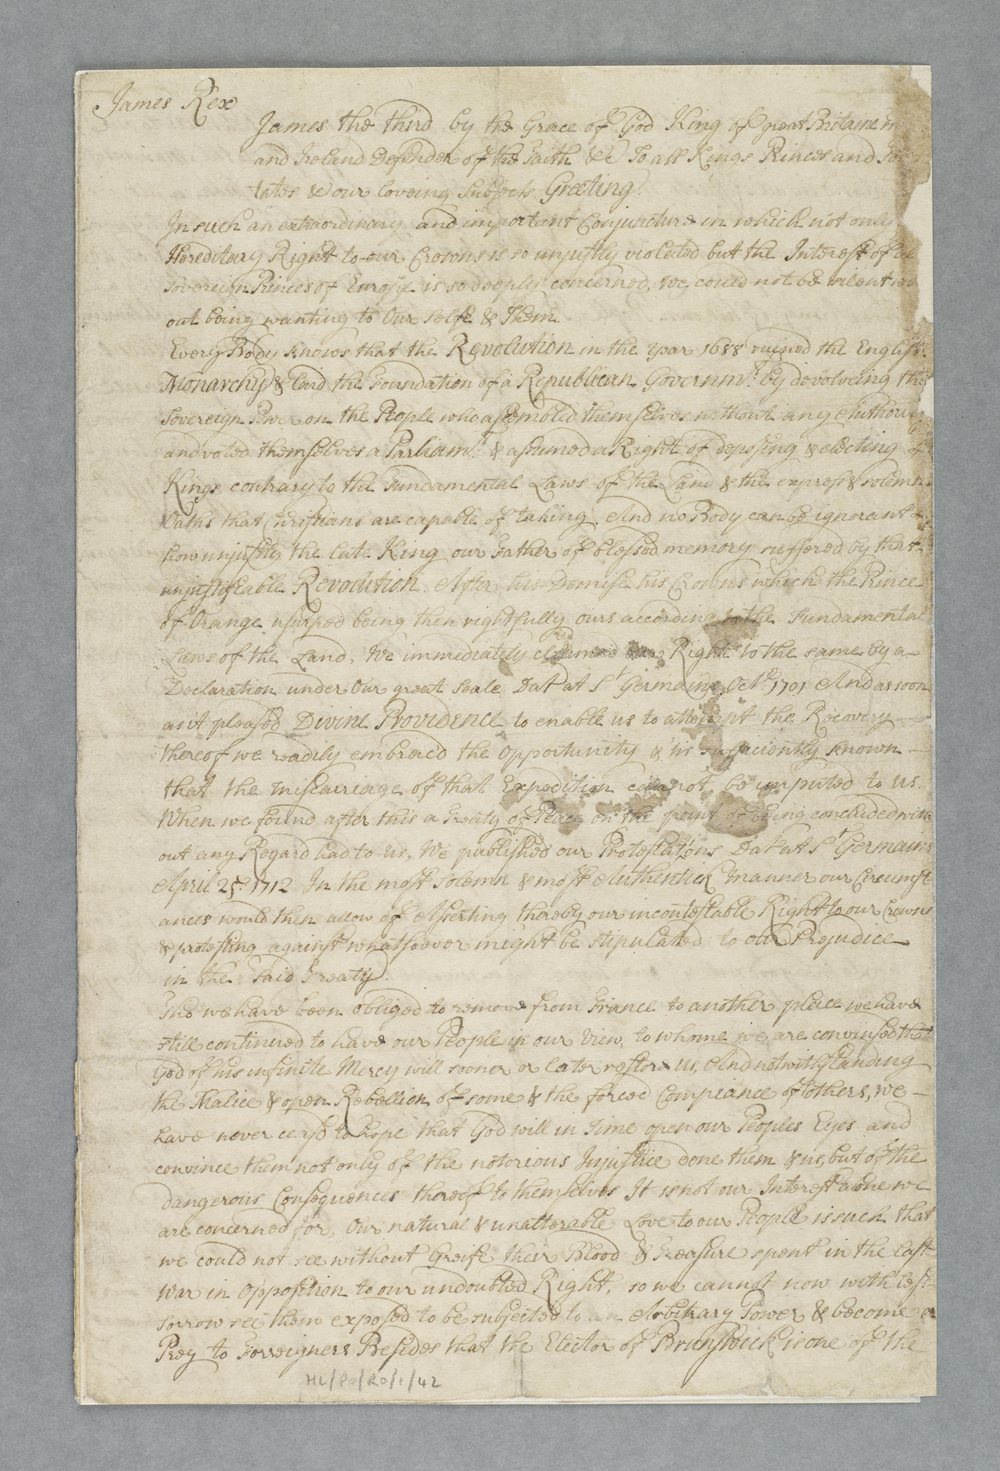 James Rex
James the third by the Grace of God King of great Britaine
and Ireland Defender of the Faith &c To all Kings Princes and
& our loveing Subjects Greeting
In such an extraordinary and important Conjuncture in which not only
Hereditary Right to our Crowns is so unjustly violated but the Interest of
Sovereign Princes of Europe is so deeply concerned, we could not be silent
out being wanting to Our selfe & Them
Every Body knows that the Revolution in the year 1688 ruined the English
Monarchy & laid the Foundation of a Republican Governmt. by devolveing the
Sovereign Power on the People who assembled themselves without any Authority
and voted themselves a Parliamt. & assumed a Right of deposing & electing of
Kings contrary to the Fundamental Laws of the Land & the express & solemn
Oaths that Christians are capable of taking And no Body can be ignorant
how unjustly the late King our Father of blessed memory suffered by that
unjustifiable Revolution. After his Demise his Crowns which the Prince
of Orange usurped being then rightfully ours according to the Fundamental
Laws of the Land. We immediately claimed our Right to the same by a
Declaration under Our great Seale Dat at St Germains Octr. 1701 And as soon
as it pleased Divine Providence to enable us to attempt the Recovery
thereof we readily embraced the opportunity & 'tis sufficiently known
that the miscarriage of that Expedition cannot be imputed to us.
When we found after this a Treaty of Peace on the point of being concluded with
out any Regard had to Us, We published our Protestations Dat at St Germains
April 25th. 1712 In the most solemn & most Authentick manner our Circumst
ances would then allow of Asserting thereby our incontestable Right to our Crowns
& protesting against whatsoever might be stipulated to our Prejudice
in the said Treaty
Tho we have been obliged to remove from France to another place we have
still continued to have our People in our View, to whome we are convinsed that
God of his infinite Mercy will sooner or later restore us, And notwithstanding
the Malice & open Rebellion of some & the forced Compliance of others, we
have never ceas'd to hope that God will in Time open our Peoples Eyes and
convince them not only of the notorious Injustice done them & us, but of the
dangerous Consequences thereof to themselves It is not our Interest alone we
are concerned for, Our natural & unalterable Love to our People is such that
we could not see without Greife their Blood & Treasure spent in the last
War in opposition to our undoubted Right, so we cannot now with less
sorrow see them exposed to be subjected to an Arbitrary Power & become a
Prey to Forreigners Besides that the Elector of Brunswick is one of the
HL/PO/RO/1/42